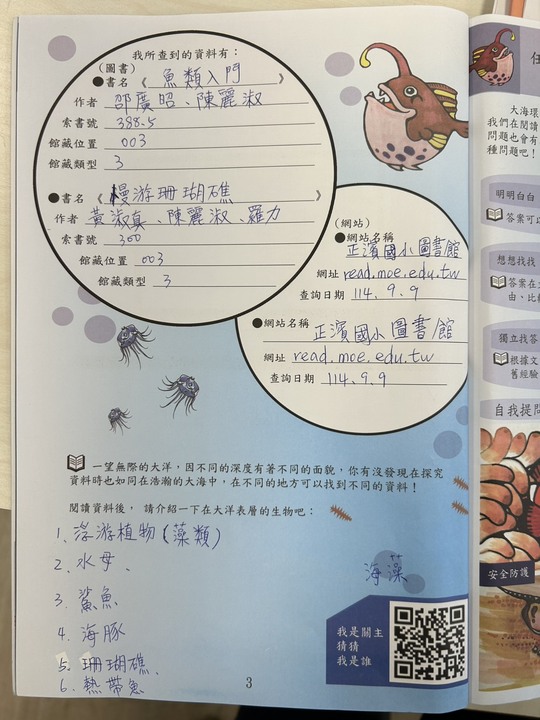 我所查到的資料有：
(圖書)
●書名《 魚類入門 》
作者 邵廣昭、陳麗淑
索書號 388.5
館藏位置 003
館藏類型 3
●書名《 漫游珊瑚礁 》
作者 黃淑真、陳麗淑、羅力
索書號 300
館藏位置 003
館藏類型 3
(網站)
●網站名稱
正濱國小圖書館
網址 read.moe.edu.tw
查詢日期 114.9.9
●網站名稱 正濱國小圖書館
網址 read.moe.edu.tw
查詢日期 114.9.9
一望無際的大洋，因不同的深度有著不同的面貌，你有沒發現在探究
資料時也如同在浩瀚的大海中，在不同的地方可以找到不同的資料！
閱讀資料後， 請介紹一下在大洋表層的生物吧：
1. 浮游植物(藻類)
2. 水母、
3. 鯊魚
4. 海豚
5. 珊瑚礁、
6. 熱帶魚
海藻
我是關主
猜猜
我是誰
3
大海環
我們在閱讀
問題也會有
種問題吧！
明明白白
答案可以
想想找找
答案在
由、比
獨立找答
根據文
舊經驗
自我提問
安全防護